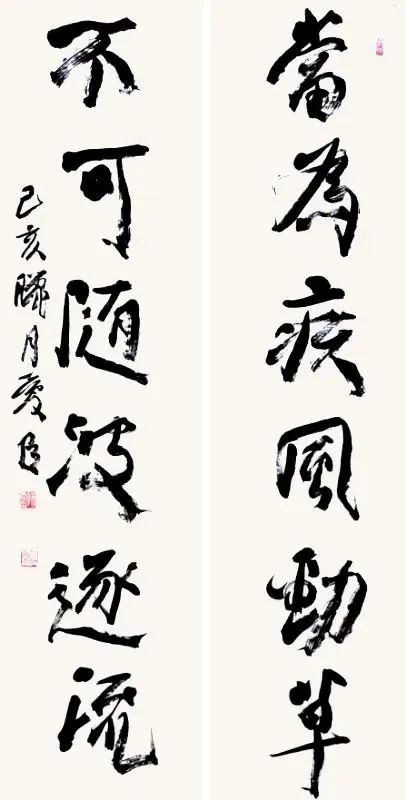 當為疾風勁草
不可随波逐流
己亥臘月慶臣